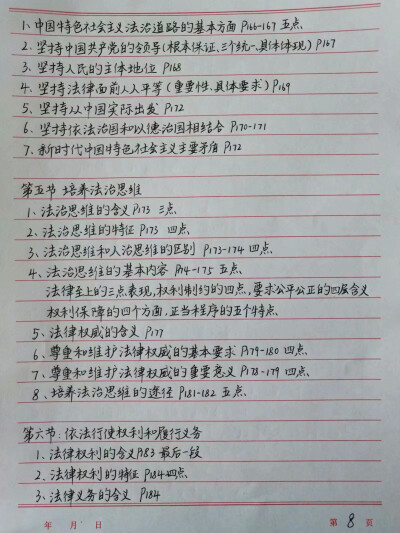 1、中国特色社会主义法治道路的基本方面 P166-167 五点
2、坚持中国共产党的领导(根本保证,三个统一,具体体现) P167
3、坚持人民的主体地位 P168
4、坚持法律面前人人平等(重要性,具体要求) P169
5、坚持从中国实际出发 P172
6、坚持依法治国和以德治国相结合 P170-171
7、新时代中国特色社会主义主要矛盾 P172
第五节 培养法治思维
1、法治思维的含义 P173 三点
2、法治思维的特征 P173 四点
3、法治思维和人治思维的区别 P173-174 四点
4、法治思维的基本内容 P174-175 五点
法律至上的三点表现,权利制约的四点,要求公平公正的四层含义
权利保障的四个方面,正当程序的五个特点
5、法律权威的含义 P177
6、尊重和维护法律权威的基本要求 P179-180 四点
7、尊重和维护法律权威的重要意义 P178-179 四点
8、培养法治思维的途径 P181-182 五点
第六节:依法行使权利和履行义务
1、法律权利的含义 P183 最后一段
2、法律权利的特征 P184 四点
3、法律义务的含义 P184
年 月 日 第 8 页